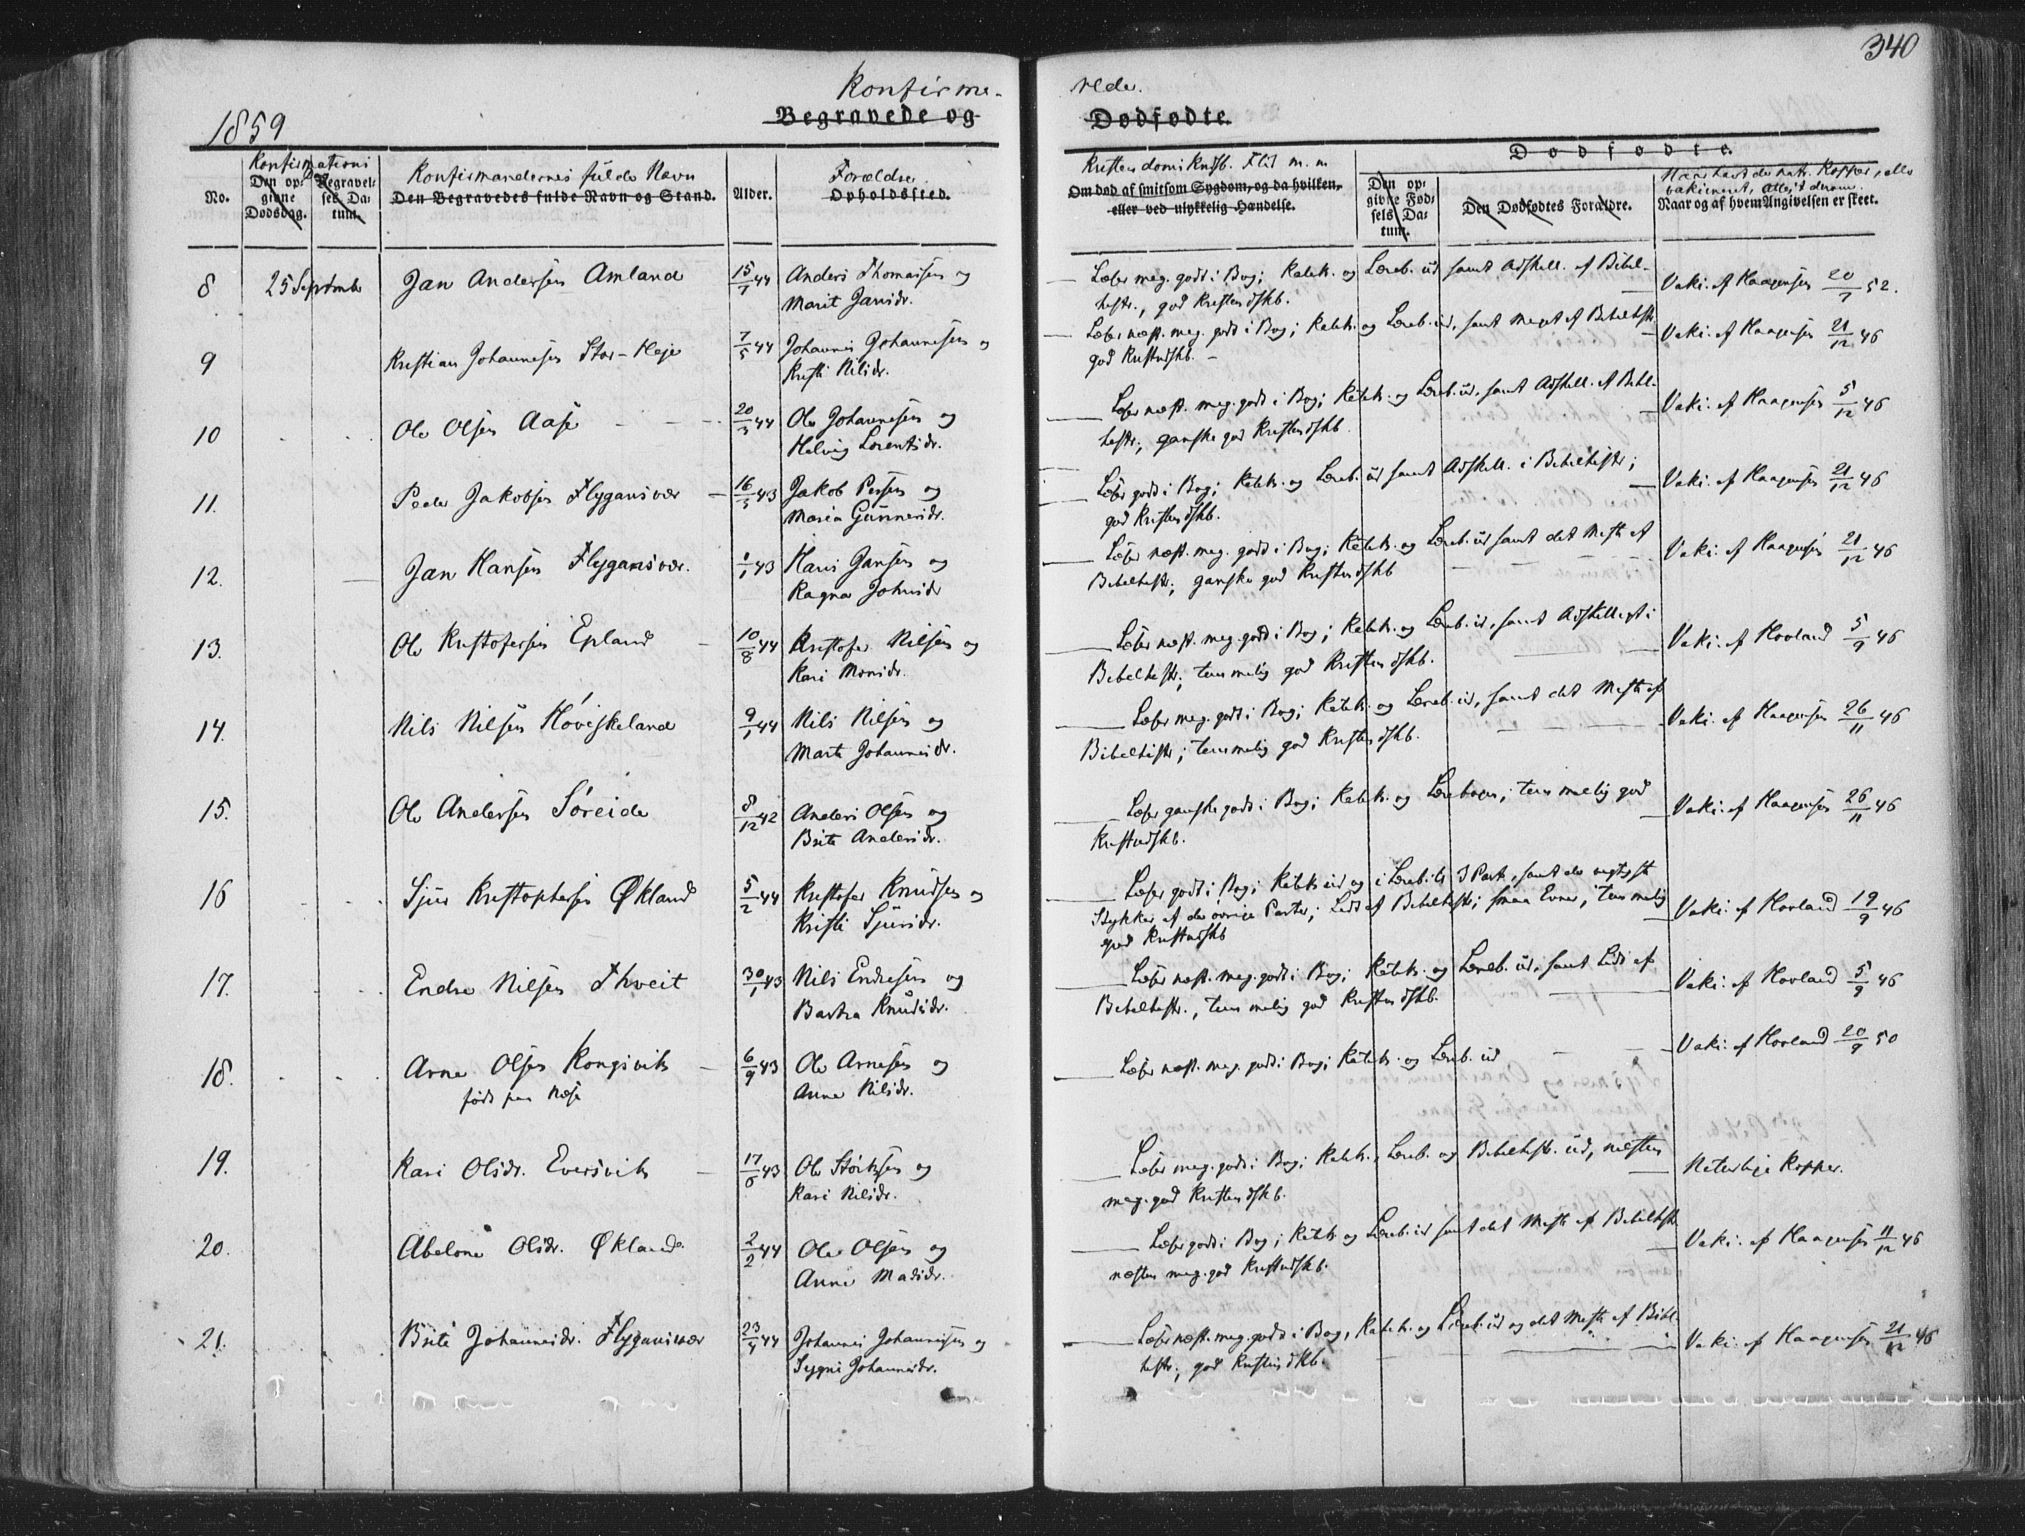 340
Konfirme-
rede.
1859
Begravede og
Dødfødte.
Konfirmations
Dødfødte.
No.
Den op-
givne
Dødsdag.
Begravel-
ses Da-
tum.
Konfirmandernes fulde Navn
Den Begravedes fulde Navn og Stand.
Alder.
Forældre
Opholdssted.
Kristendomskndsb. Flid m. m.
Om død af smitsom Sygdom, og da hvilken,
eller ved ulykkelig Hændelse.
Den op-
givne Fød-
sels Da-
tum.
Den Dødfødtes Forældre.
Naar og af hvem Angivelsen er skeet.
8 25 September Jan Andersen Amland 15/7 44 Anders Thomassen og
Marit Jansdr.
Læser meg. godt i Bog; Katek. og Læreb. ud samt Adskill. af Bibel-
histr., god Kristendskb.
Vaki. af Haagensen 20/7 52.
9 Kristian Johannesen Stor-Heje 7/5 44 Johannes Johannesen og
Kristi Nilsdr.
Læser næst. meg. godt i Bog; Katek. og Læreb. ud, samt meget af Bibelhistr.
god Kristendskb.
Vaki. af Haagensen 21/12 46
10 Ole Olsen Aase 20/3 44 Ole Johannesen og
Helvig Lorentsdr.
Læser næst. meg. godt i Bog; Katek. og Læreb. ud, samt Adskill. af Bibel-
histr., ganske god Kristendskb.
Vaki. af Haagensen 5/12 46
11. Peder Jakobsen Flygansvær 16/3 43 Jakob Persen og
Maria Gunnersdr.
Læser godt i Bog; Katek. og Læreb. ud samt Adskill. i Bibelhistr;
god Kristendskb.
Vaki. af Haagensen 21/12 46
12. Jan Hansen Flygansvær. 1/1 43 Hans Jansen og
Ragna Johnsdr
Læser næst. meg. godt i Bog; Katek. og Læreb. ud samt det Meste af
Bibelhistr; ganske god Kristendskb
Vaki. af Haagensen 21/12 46
13. Ole Kristofersen Epland 10/8 44 Kristofer Nilsen og
Kari Monsdr.
Læser næst. meg. godt i Bog; Katek. og Læreb. ud, samt Adskilligt i
Bibelhistr; temmelig god Kristendskb.
Vaki. af Hovland 5/9 46
14. Nils Nilsen Høviskeland 9/1 44 Nils Nilsen og
Marta Johannesdr.
Læser meg. godt i Bog; Katek. og Læreb. ud, samt det Meste af
Bibelhistr; temmelig god Kristendskb.
Vaki. af Haagensen 26/11 46
15. Ole Andersen Søreide 8/12 42 Anders Olsen og
Brita Andersdr.
Læser ganske godt i Bog; Katek. og Lærebogen; temmelig god
Kristendskb.
Vaki. af Haagensen 26/11 46
16 Sjur Kristophersen Økland 5/2 44 Kristofer Knudsen og
Kristi Sjursdr.
Læser godt i Bog; Katek. ud og i Læreb. til 3 Part, samt de vigtigste
Stykker af de øvrige Parter; Lidt af Bibelhistr; smaa Evner; temmelig
god Kristendskb
Vaki. af Hovland 19/9 46
17. Endre Nilsen Thveit 30/1 43 Nils Endresen og
Bartra Knudsdr.
Læser næst. meg. godt i Bog; Katek. og Læreb. ud, samt Lidt af
Bibelhistr., temmelig god Kristendskb.
Vaki. af Hovland 5/9 46
18. Arne Olsen Kongsvik 6/9 43 Ole Arnesen og
født paa Næse Anne Nilsdr.
Læser næst. meg. godt i Bog; Katek. og Læreb. ud
Vaki. af Hovland 20/9 50
19. Kari Olsdr. Eversvik 17/6 43 Ole Størksen og
Kari Nilsdr.
Læser meg. godt i Bog; Katek., Læreb. og Bibelhistr. ud, næsten
meg. god Kristendskb.
Naturlige Kopper.
20. Abelone Olsdr. Økland 2/2 44 Ole Olsen og
Anne Madsdr.
Læser godt i Bog; Katek. og Læreb. ud samt det Meste af Bibelhistr
næsten meg. god Kristendskb.
Vaki. af Haagensen 11/12 46
21. Brite Johannesdr. Flygansvær 23/4 44 Johannes Johannessen og
Sygni Johannesdr.
Læser næst. meg. godt i Bog, Katek. og Læreb. ud og det Meste af Bibel-
histr; god Kristendskb.
Vaki. af Haagensen 21/12 46